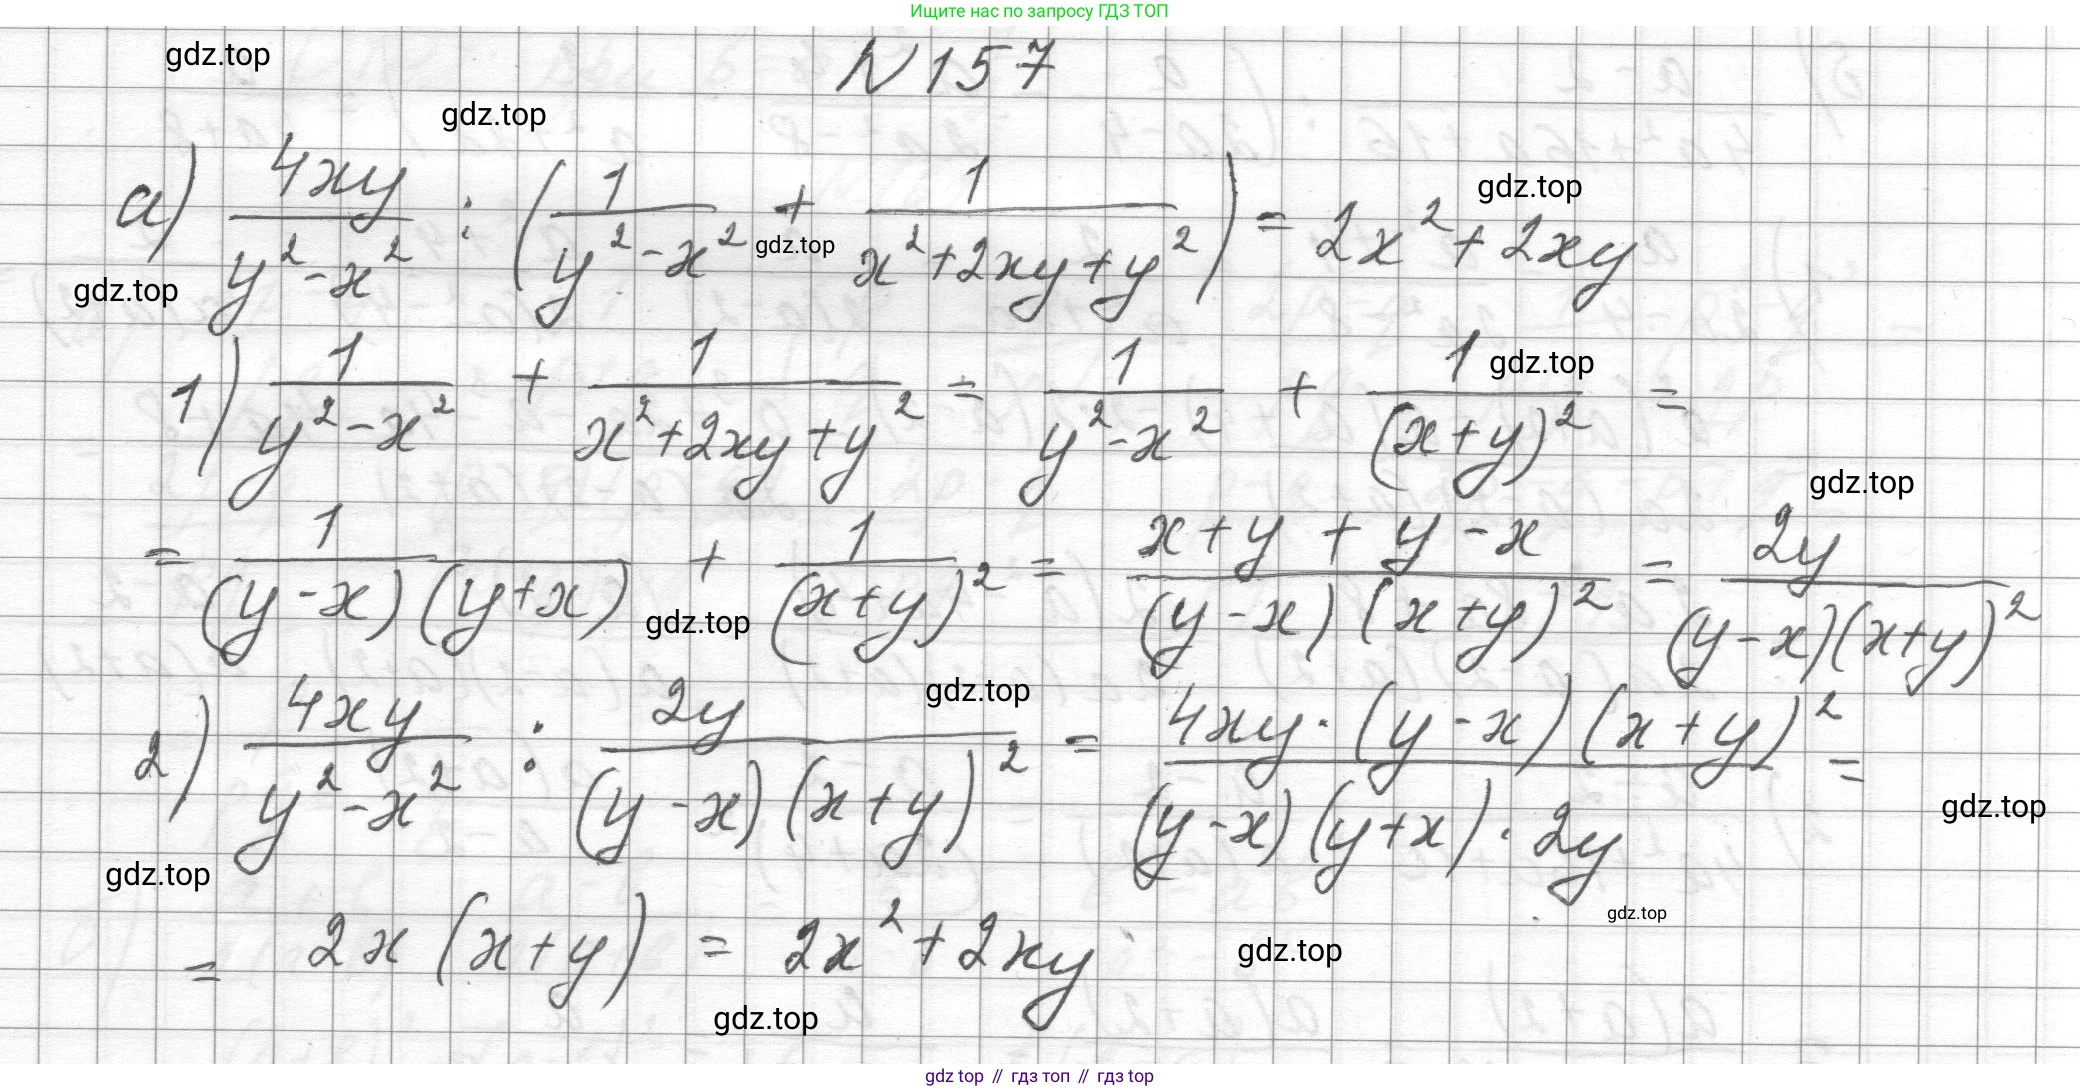 Ищите нас по запросу ГДЗ ТОП
gdz.top
N 157
gdz.top
а) 4xy / (y² - x²) : (1 / (y² - x²) + 1 / (x² + 2xy + y²)) = 2x² + 2xy
gdz.top
gdz.top
gdz.top
1) 1 / (y² - x²) + 1 / (x² + 2xy + y²) = 1 / (y² - x²) + 1 / (x + y)² =
gdz.top
gdz.top
= 1 / ((y - x)(y + x)) + 1 / (x + y)² = (x + y + y - x) / ((y - x)(x + y)²) = 2y / ((y - x)(x + y)²)
gdz.top
gdz.top
2) 4xy / (y² - x²) : 2y / ((y - x)(x + y)²) = (4xy · (y - x)(x + y)²) / ((y - x)(y + x) · 2y) =
gdz.top
gdz.top
gdz.top
= 2x (x + y) = 2x² + 2xy
gdz.top
gdz.top
gdz top // гдз топ // гдз top